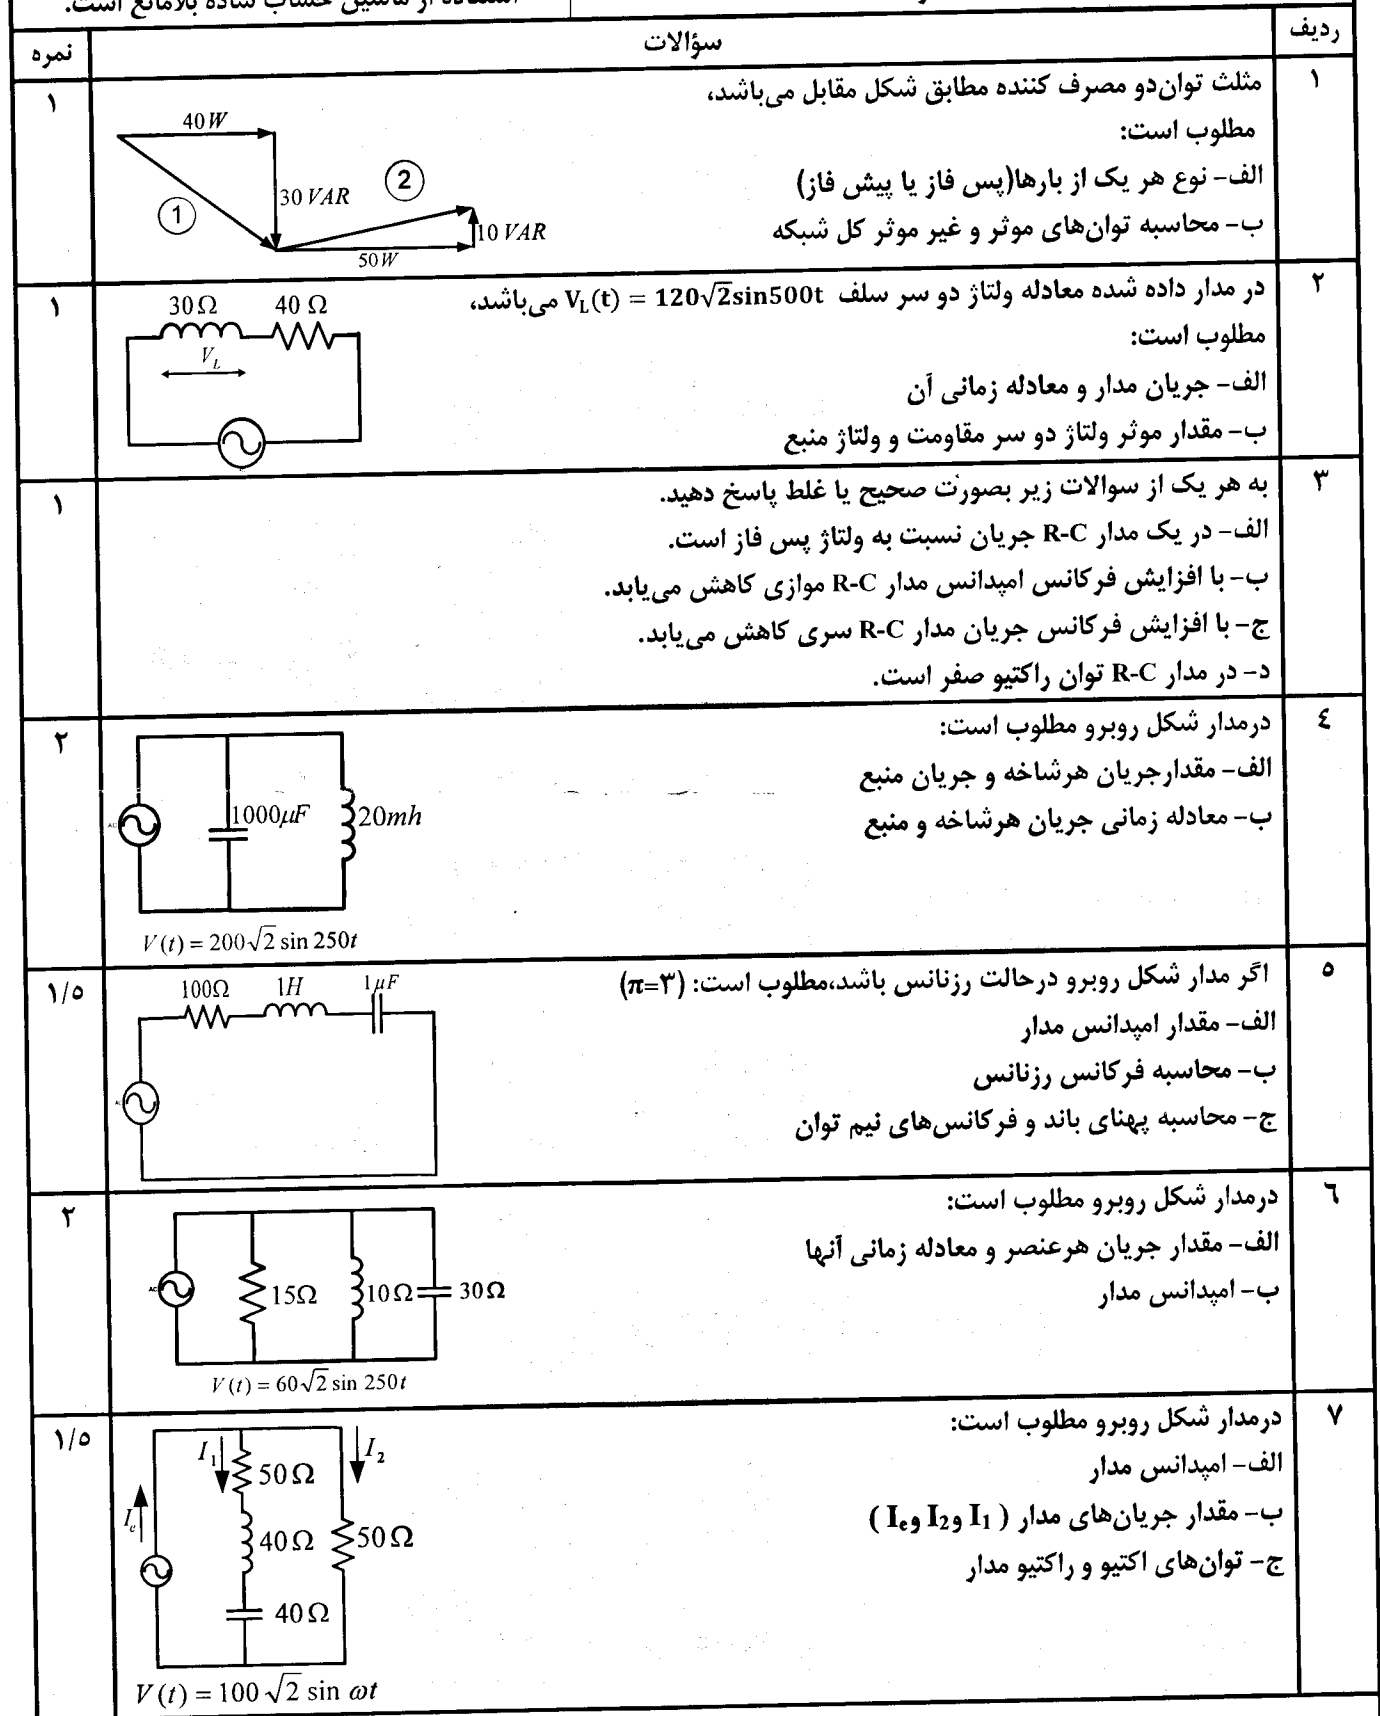 استفاده از ماشین حساب ساده بلامانع است.
ردیف
سؤالات
نمره
۱
مثلث توان دو مصرف کننده مطابق شکل مقابل می‌باشد،
مطلوب است:
الف- نوع هر یک از بارها(پس فاز یا پیش فاز)
ب- محاسبه توان‌های موثر و غیر موثر کل شبکه
40W
30 VAR
1
2
10 VAR
50W
۱
۲
در مدار داده شده معادله ولتاژ دو سر سلف V_L(t) = 120√2sin500t می‌باشد،
مطلوب است:
الف- جریان مدار و معادله زمانی آن
ب- مقدار موثر ولتاژ دو سر مقاومت و ولتاژ منبع
30Ω 40 Ω
V_L
۱
۳
به هر یک از سوالات زیر بصورت صحیح یا غلط پاسخ دهید.
الف- در یک مدار R-C جریان نسبت به ولتاژ پس فاز است.
ب- با افزایش فرکانس امپدانس مدار R-C موازی کاهش می‌یابد.
ج- با افزایش فرکانس جریان مدار R-C سری کاهش می‌یابد.
د- در مدار R-C توان راکتیو صفر است.
۱
٤
درمدار شکل روبرو مطلوب است:
الف- مقدارجریان هرشاخه و جریان منبع
ب- معادله زمانی جریان هرشاخه و منبع
1000μF
20mh
V(t) = 200√2 sin 250t
۲
٥
اگر مدار شکل روبرو درحالت رزنانس باشد،مطلوب است: (π=۳)
الف- مقدار امپدانس مدار
ب- محاسبه فرکانس رزنانس
ج- محاسبه پهنای باند و فرکانس‌های نیم توان
100Ω 1H 1μF
۱/٥
٦
درمدار شکل روبرو مطلوب است:
الف- مقدار جریان هرعنصر و معادله زمانی آنها
ب- امپدانس مدار
AC
15Ω 10Ω 30Ω
V(t) = 60√2 sin 250t
۲
۷
درمدار شکل روبرو مطلوب است:
الف- امپدانس مدار
ب- مقدار جریان‌های مدار ( I₁ و I₂ و Iₑ )
ج- توان‌های اکتیو و راکتیو مدار
I₁
I₂
50Ω
Iₑ
40Ω
50Ω
40Ω
V(t) = 100√2 sin ωt
۱/٥